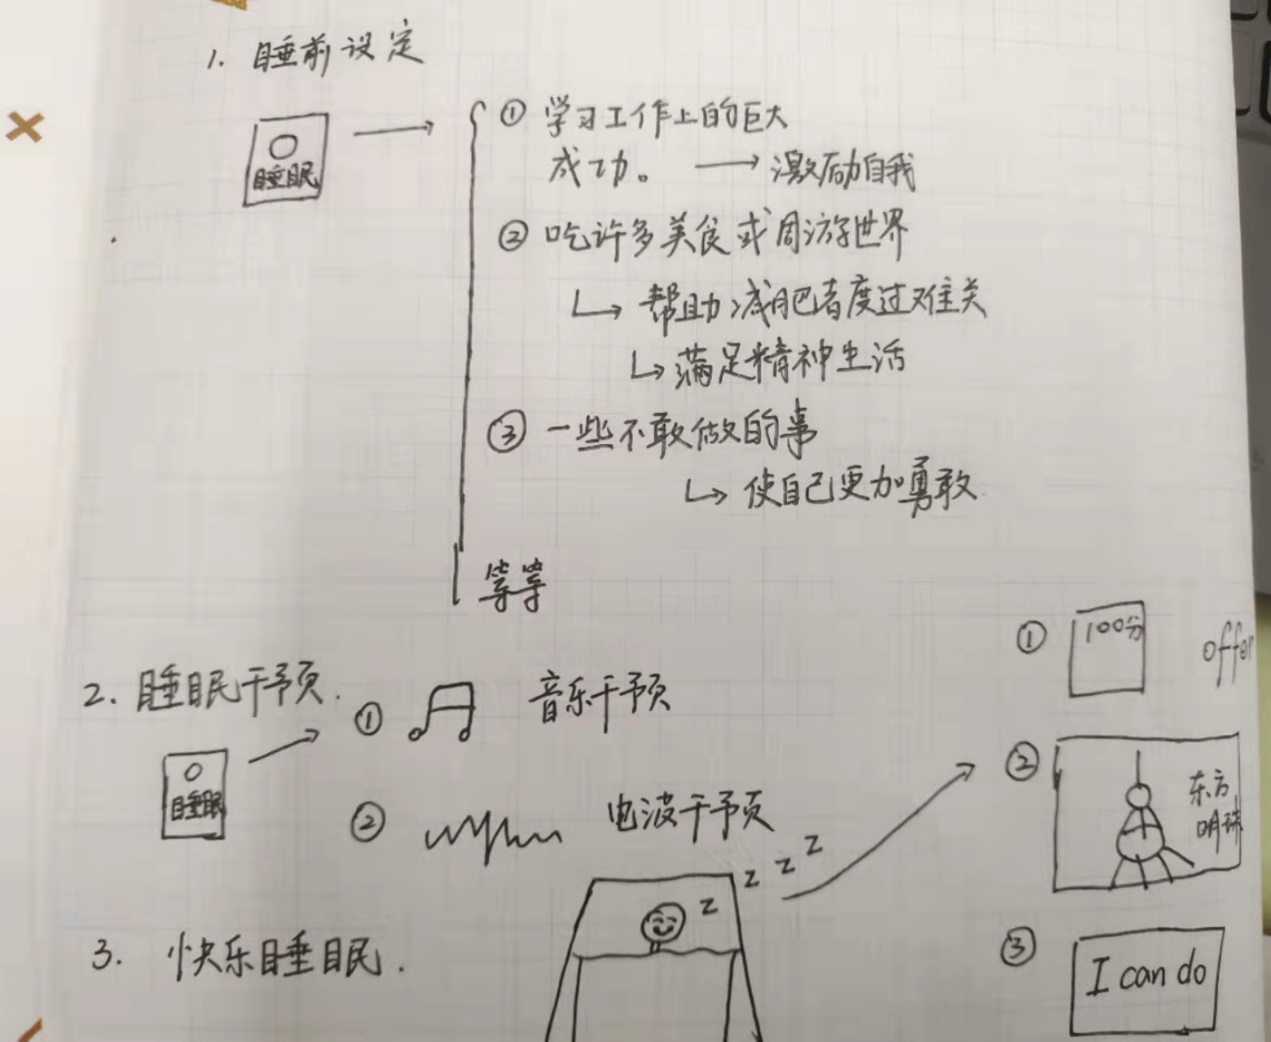 1. 睡前设定
睡眠
① 学习工作上的巨大
成功。 → 激励自我
② 吃许多美食或周游世界
↳ 帮助减肥者度过难关
↳ 满足精神生活
③ 一些不敢做的事
↳ 使自己更加勇敢
等等
2. 睡眠干预.
睡眠
① 音乐干预
② 电波干预
3. 快乐睡眠.
z z z z
① 100分 offer
② 东方
明珠
③ I can do